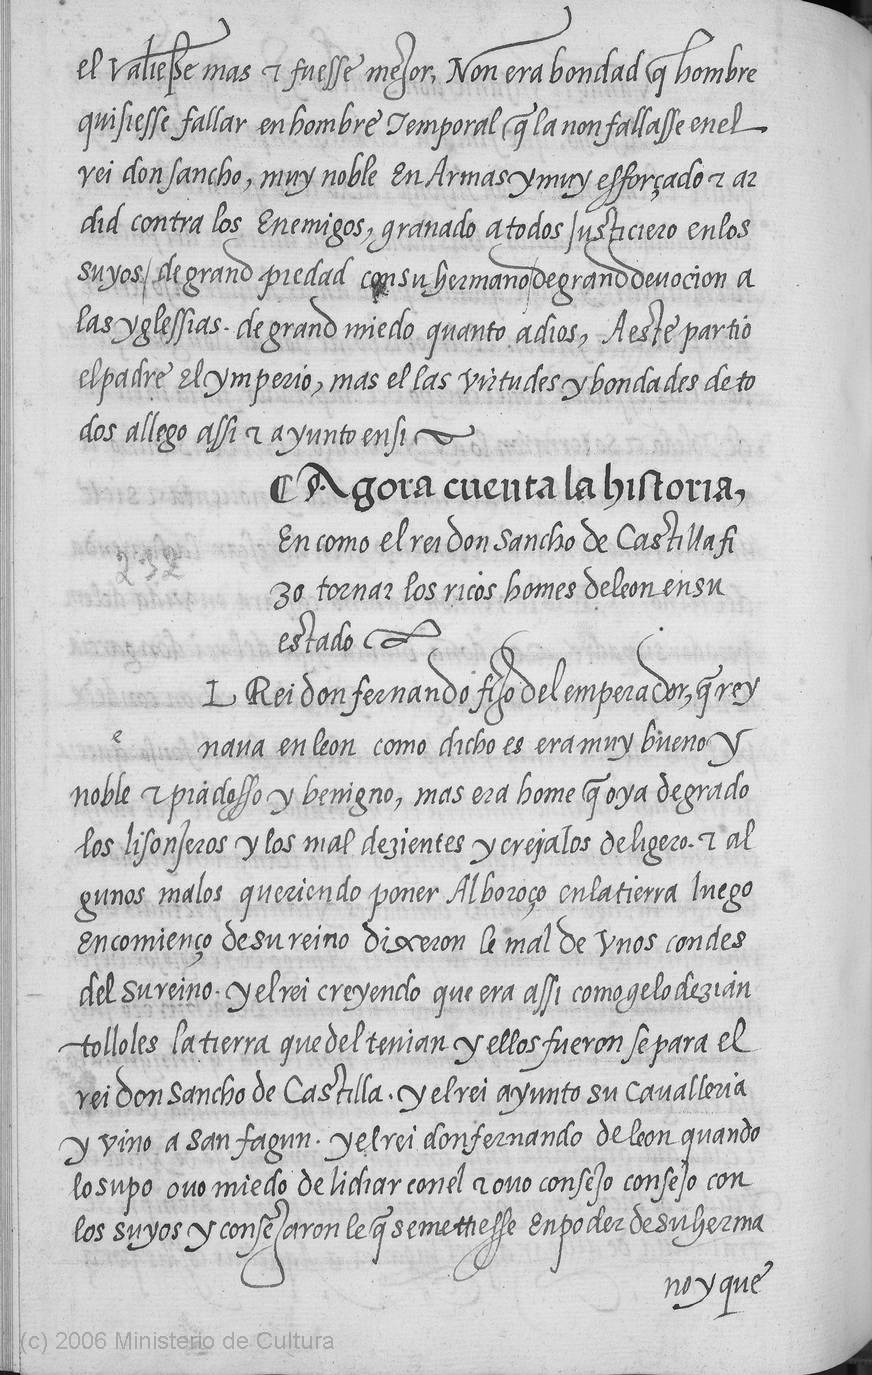 el valiesse mas ⁊ fuesse mejor, Non era bondad q̃ hombre
quisiesse fallar en hombre Temporal q̃ la non fallasse en el
rei don sancho, muy noble En Armas y muy esforçado ⁊ ar
did contra los Enemigos, granado a todos Justiciero en los
suyos / de grand piedad con su hermano / de grand deuocion a
las yglessias. de grand miedo quanto a dios, A este partio
el padre El ymperio, mas el las virtudes y bondades de to
dos allego assi ⁊ ayunto en si
¶ Agora cuenta la historia,
En como el rei don Sancho de Castilla fi
zo tornar los ricos homes de leon en su
estado
232
L Rei don fernando fijo del emperador, q̃ rey
e naua en leon como dicho es era muy bueno y
noble ⁊ piadosso y benigno, mas era home q̃ oya de grado
los lisonjeros y los mal dezientes y crejalos de ligero. ⁊ al
gunos malos queriendo poner Alboroço en la tierra luego
En comienço de su reino dixeron le mal de vnos condes
del su reino. y el rei creyendo que era assi como gelo dezian
tolloles la tierra que del tenian y ellos fueron se para el
rei don Sancho de Castilla. y el rei ayunto su Cavalleria
y vino a San fagun. y el rei don fernando de leon quando
lo supo ouo miedo de lidiar con el ⁊ ouo consejo consejo con
los suyos y consejaron le q̃ se mettiesse En poder de su herma
no y que
(c) 2006 Ministerio de Cultura